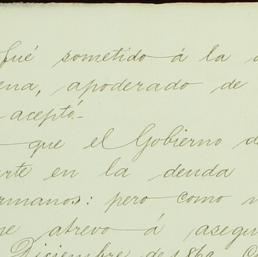 fué sometido á la
ena, apoderado de
aceptó.-
- que el Gobierno d
rte en la deuda
rmanos: pero como
me atrevo á asegu
Diciembre de 1860.